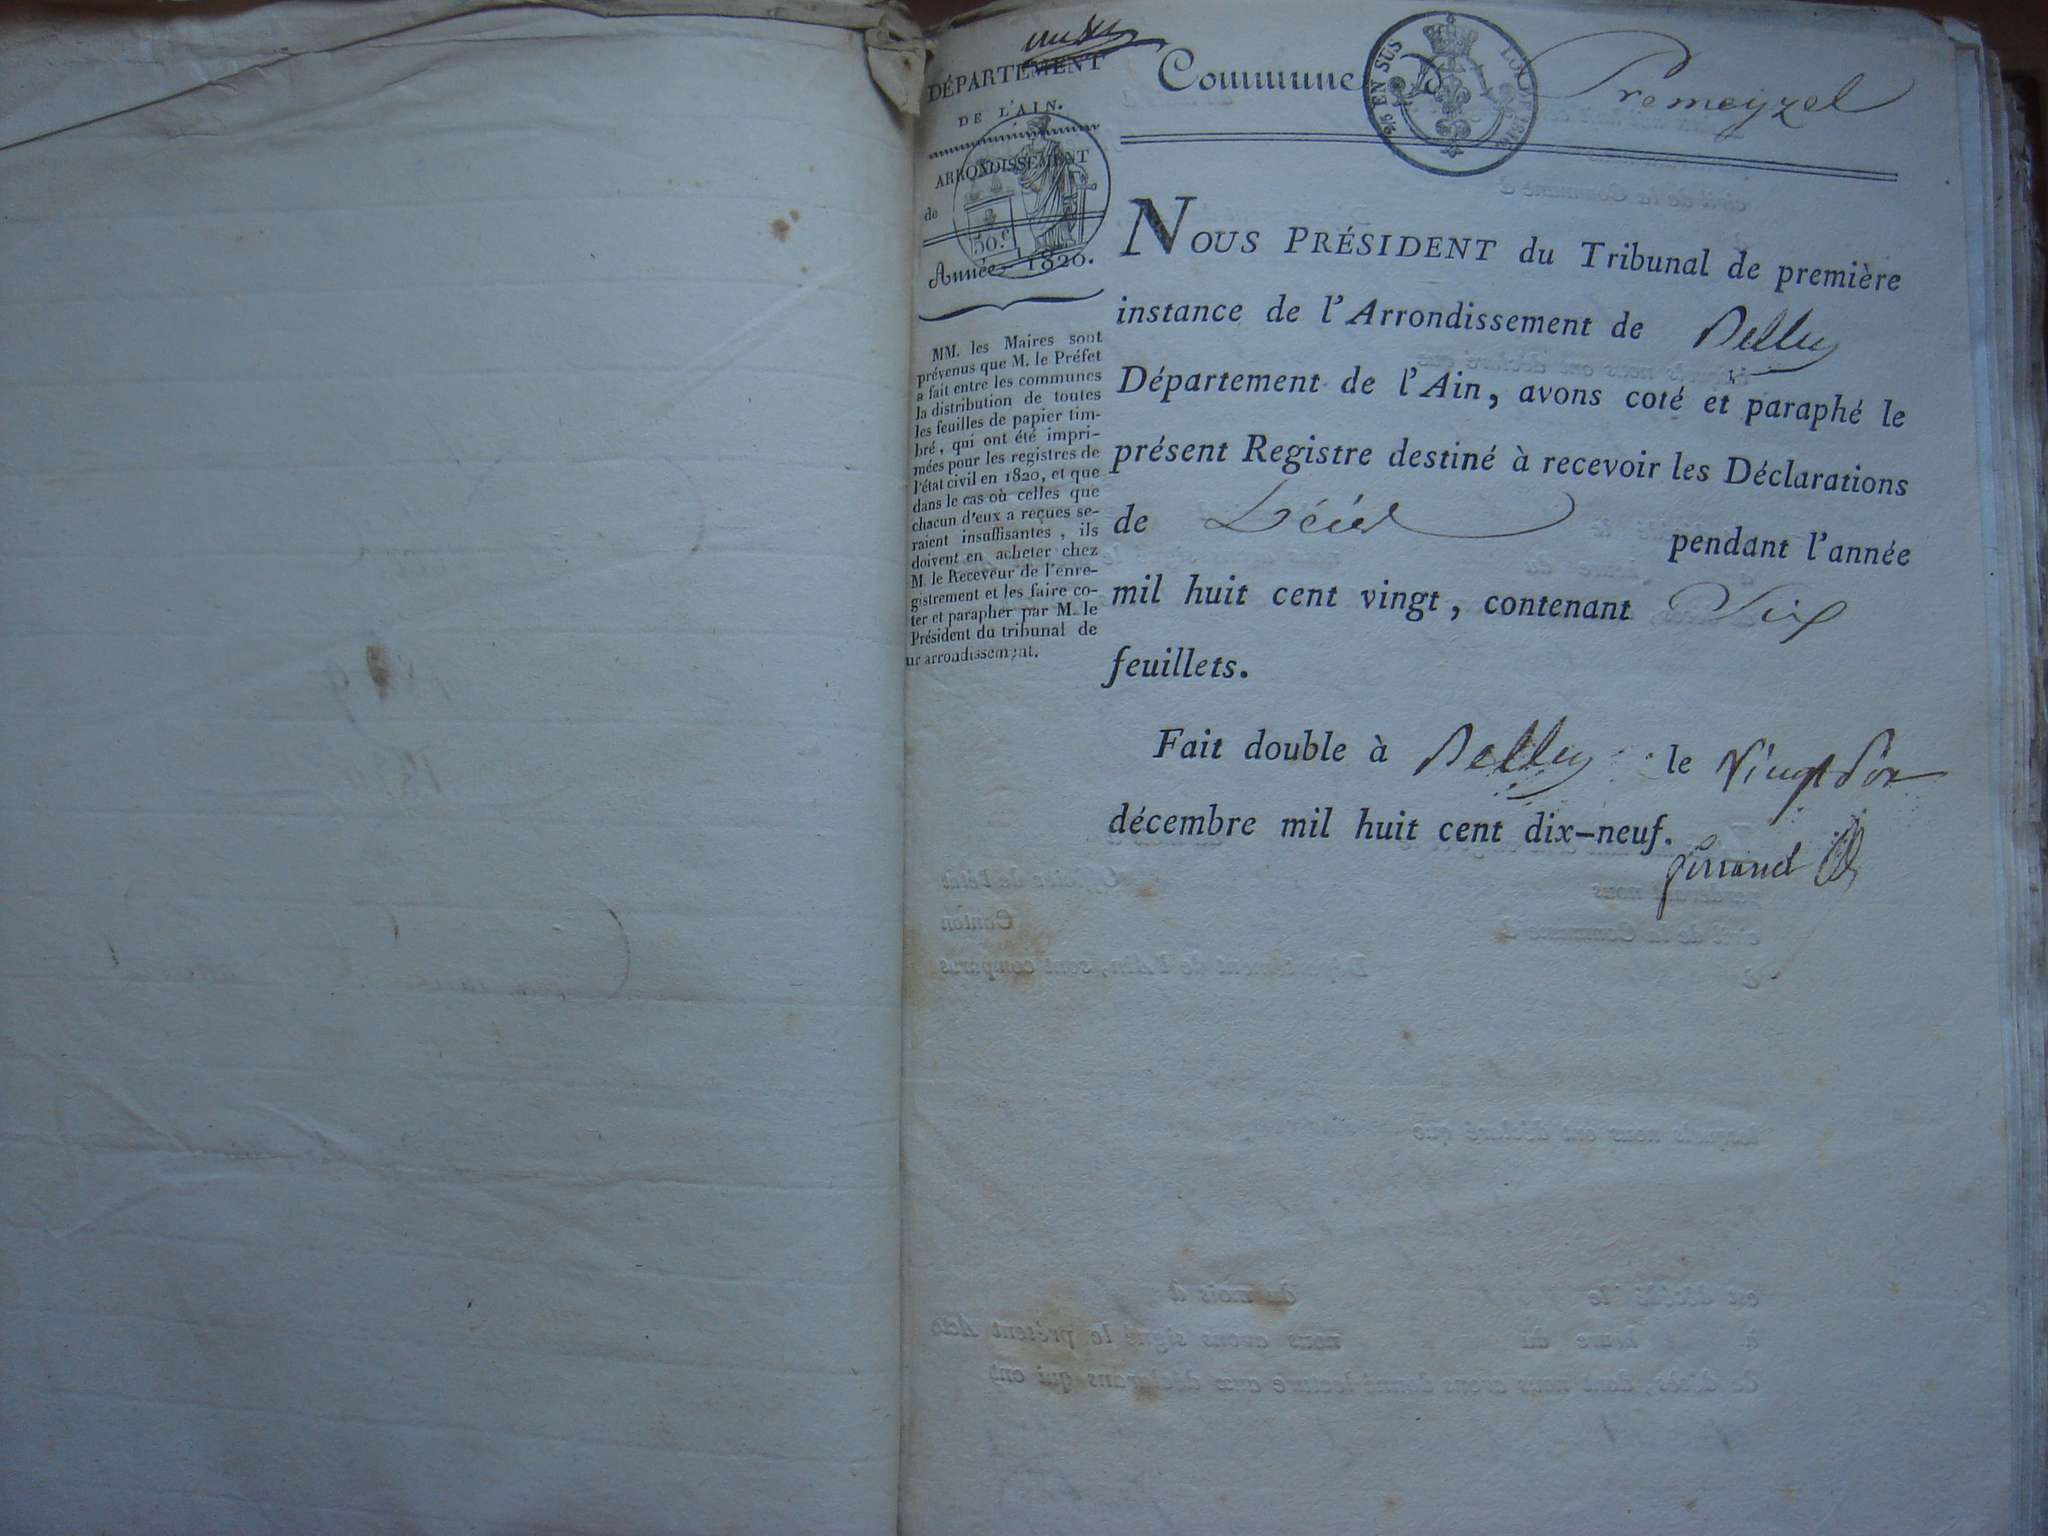 DÉPARTEMENT
DE L'AIN.
ARRONDISSEMENT
de
50.c
Année 1820.
MM. les Maires sont
prévenus que M. le Préfet
a fait entre les communes
la distribution de toutes
les feuilles de papier tim-
bré, qui ont été impri-
mées pour les registres de
l'état civil en 1820, et que
dans le cas où celles que
chacun d'eux a reçues se-
raient insuffisantes, ils
doivent en acheter chez
M. le Receveur de l'enre-
gistrement et les faire co-
ter et parapher par M. le
Président du tribunal de
ur arrondissement.
Commune de Premeyzel
EN SUS LOI DE 1816
NOUS PRÉSIDENT du Tribunal de première
instance de l'Arrondissement de Belley
Département de l'Ain, avons coté et paraphé le
présent Registre destiné à recevoir les Déclarations
de Décès pendant l'année
mil huit cent vingt, contenant Six
feuillets.
Fait double à Belley le Vingt
décembre mil huit cent dix-neuf.